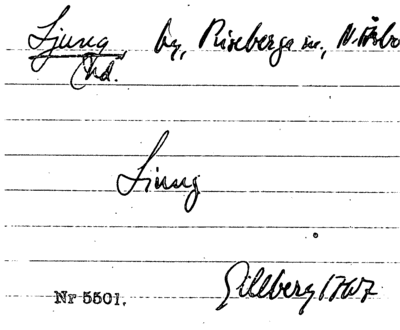 Ljung, by, Riseberga sn, N. Åsbo
Chd.
Liung
Gillberg 1767
Nr 5501.